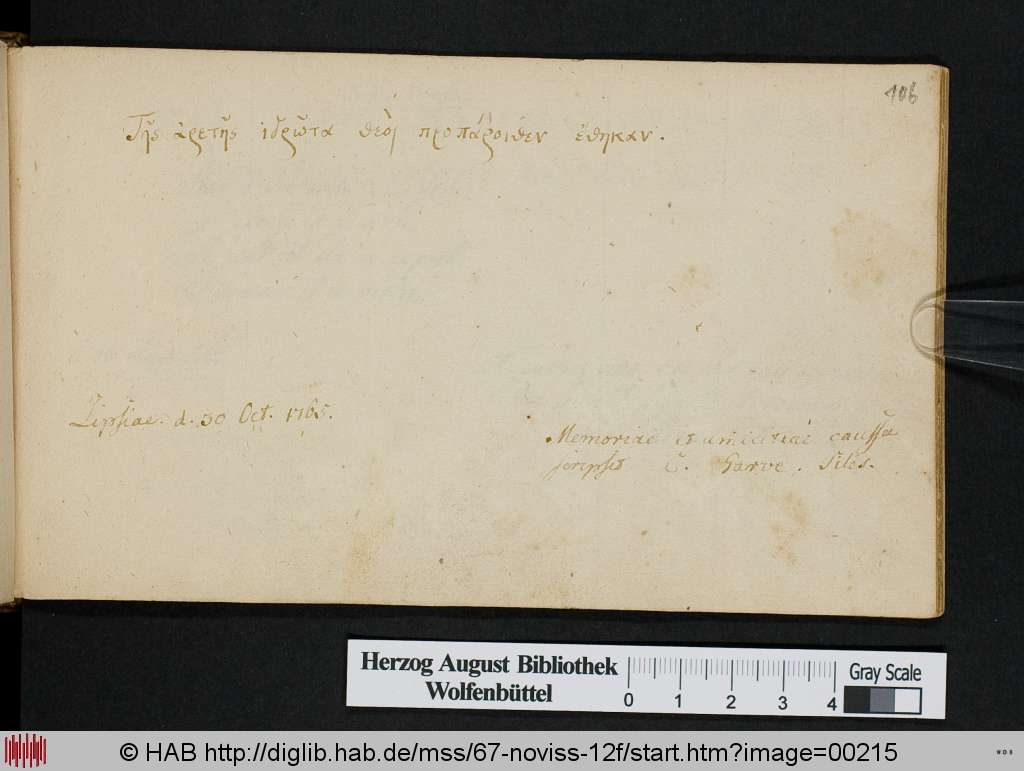 106
Τῆς ἀρετῆς ἱδρῶτα θεὸι προπάροιθεν ἔθηκαν.
Lipsiae. d. 30 Oct. 1765.
Memoriae et amicitiae caussa
scripsit C. Garve. Siles.
Herzog August Bibliothek
Wolfenbüttel
0 1 2 3 4
Gray Scale
© HAB http://diglib.hab.de/mss/67-noviss-12f/start.htm?image=00215
WDB